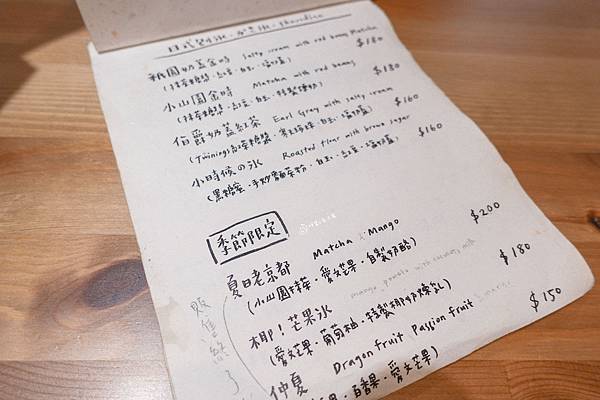 日式刨冰・かき氷・
祇園奶蓋金時 Salty cream with red beans Matcha $180
小山園金時 Matcha with red beans $180
伯爵奶蓋紅茶 Earl Gray with salty cream $160
(Twinings紅茶糖漿・
小時候の氷 Roasted flour with brown sugar $160
(黑糖蜜・手炒麵茶粉・白玉・紅豆・
季節限定
夏日老京都 Matcha & Mango $200
(小山園抹茶・愛文芒果・自製奶酪)
椰!芒果氷 mango pomelo with coconut milk $180
(愛文芒果・葡萄柚・特製椰奶煉乳)
仲夏 Dragon fruit Passion fruit $150
百香果・愛文芒果)
販售終了